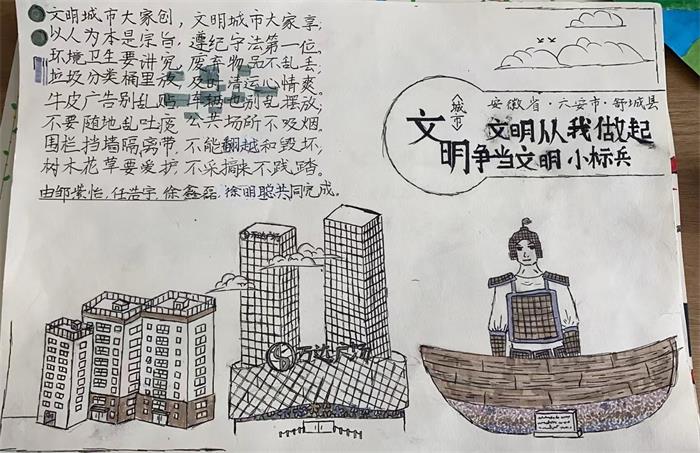 文明城市大家创，文明城市大家享；
以人为本是宗旨，遵纪守法第一位。
环境卫生要讲究，废弃物品不乱丢；
垃圾分类桶里放，及时清运心情爽。
牛皮广告别乱贴 车辆也别乱摆放；
不要随地乱吐痰 公共场所不吸烟。
围栏挡墙隔离带，不能翻越和毁坏，
树木花草要爱护，不采摘来不践踏。
由邹滢怡，任浩宇，徐鑫磊，徐明聪共同完成。
安徽省·六安市·舒城县
文明
城市
文明从我做起
争当文明小标兵
万达广场
万达广场